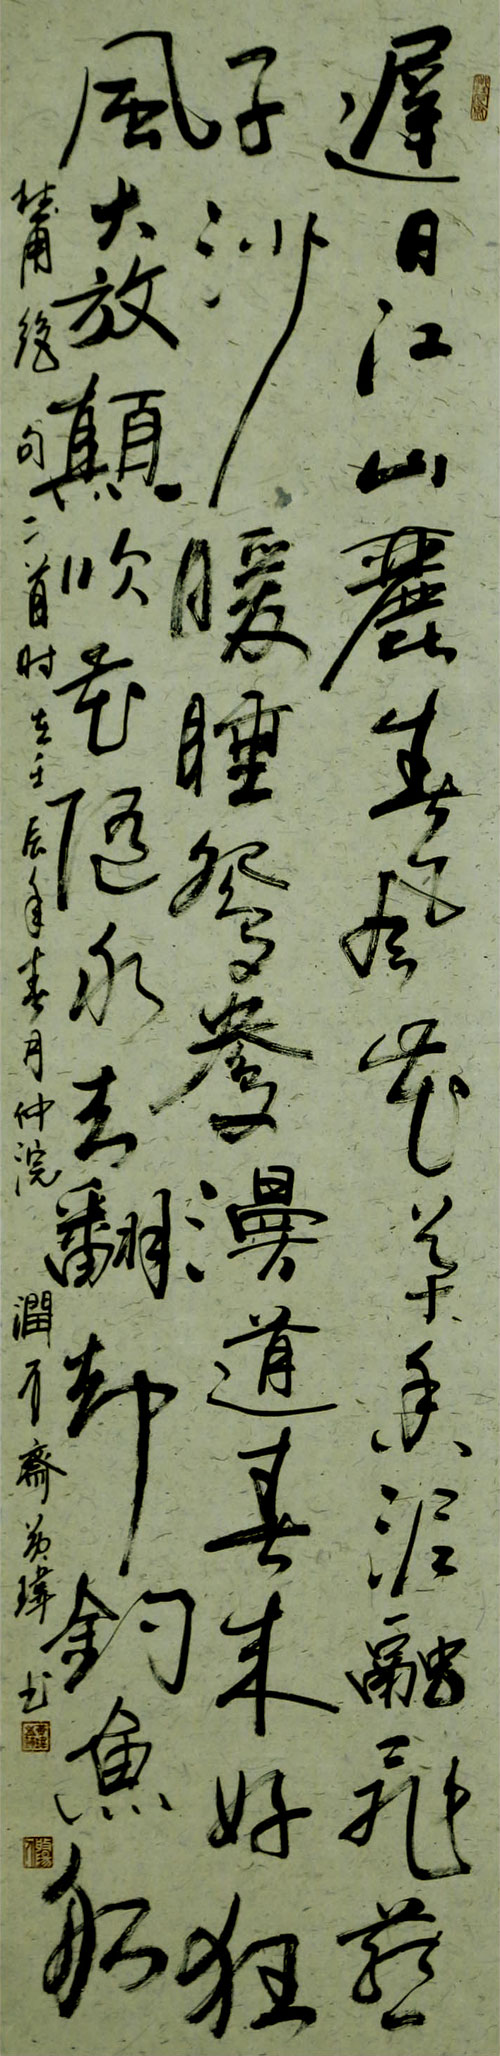 遲日江山麗春風花草香泥融飛燕
子沙暖睡鴛鴦漫道春来好狂
風大放顛吹花隨水去翻却釣魚船
杜甫絕句二首时在壬辰年春月仲浣 潤齋瑋书